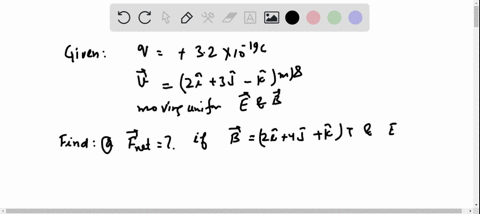 Given: q = + 3.2 × 10⁻¹⁹ C
V⃗ = (2î + 3ĵ - k̂) m/s
moving unifor E⃗ & B⃗
Find: ⓐ F⃗net = ?. if B⃗ = (2î + 4ĵ + k̂) T & E